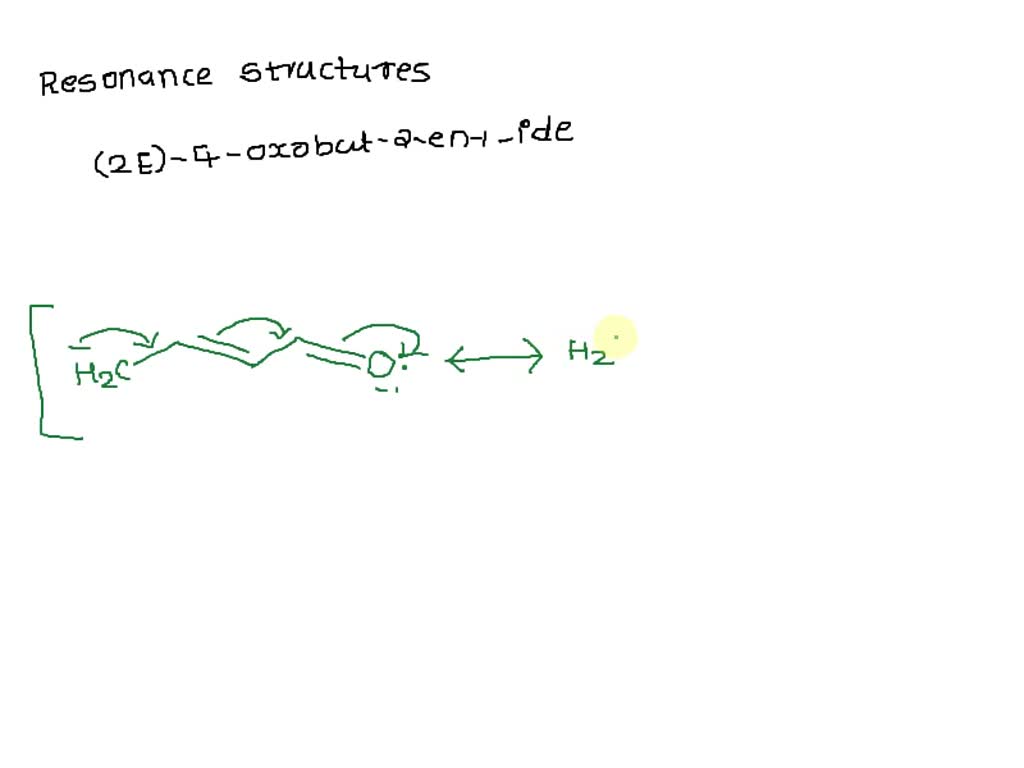 Resonance structures
(2E)-4-oxobut-2-en-1-ide
H2C O H2